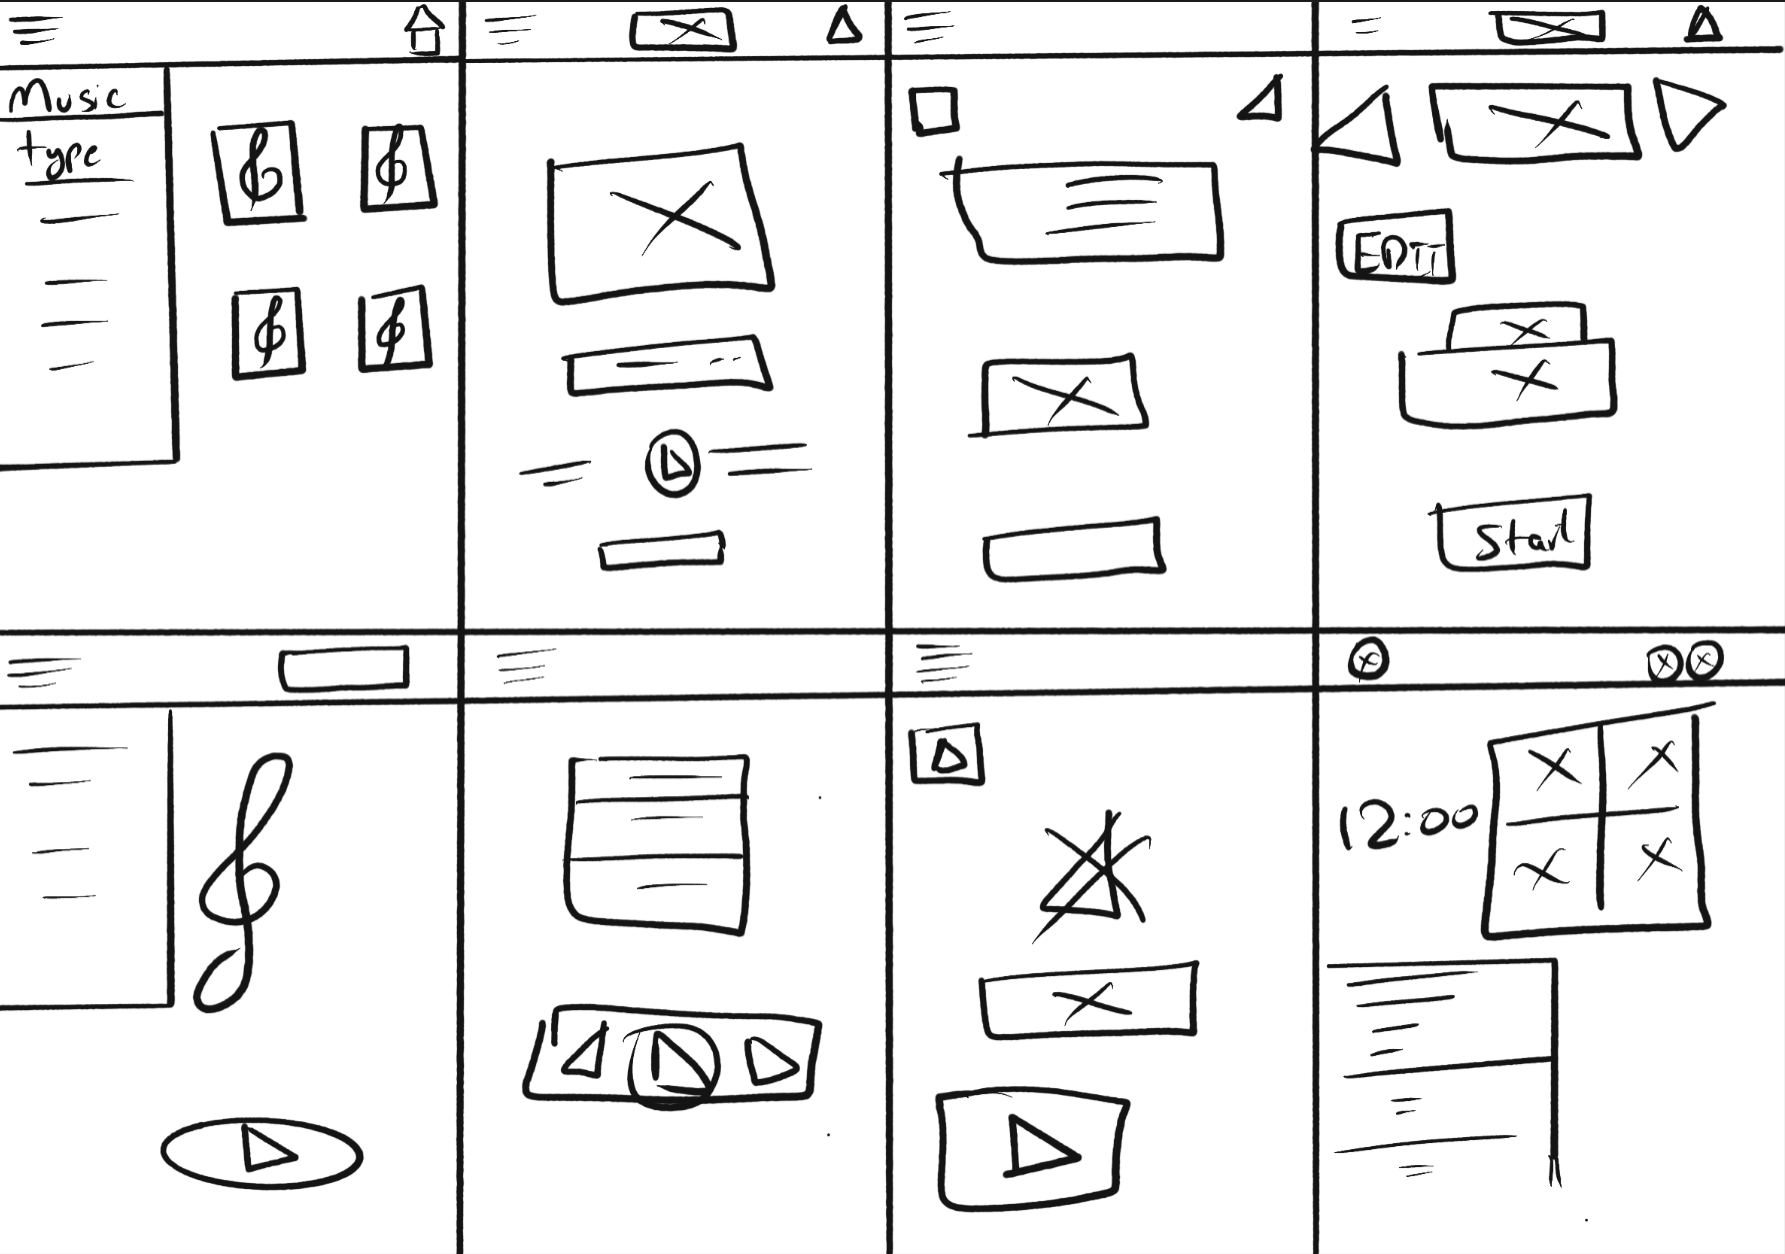 Music
type
EDIT
Start
12:00